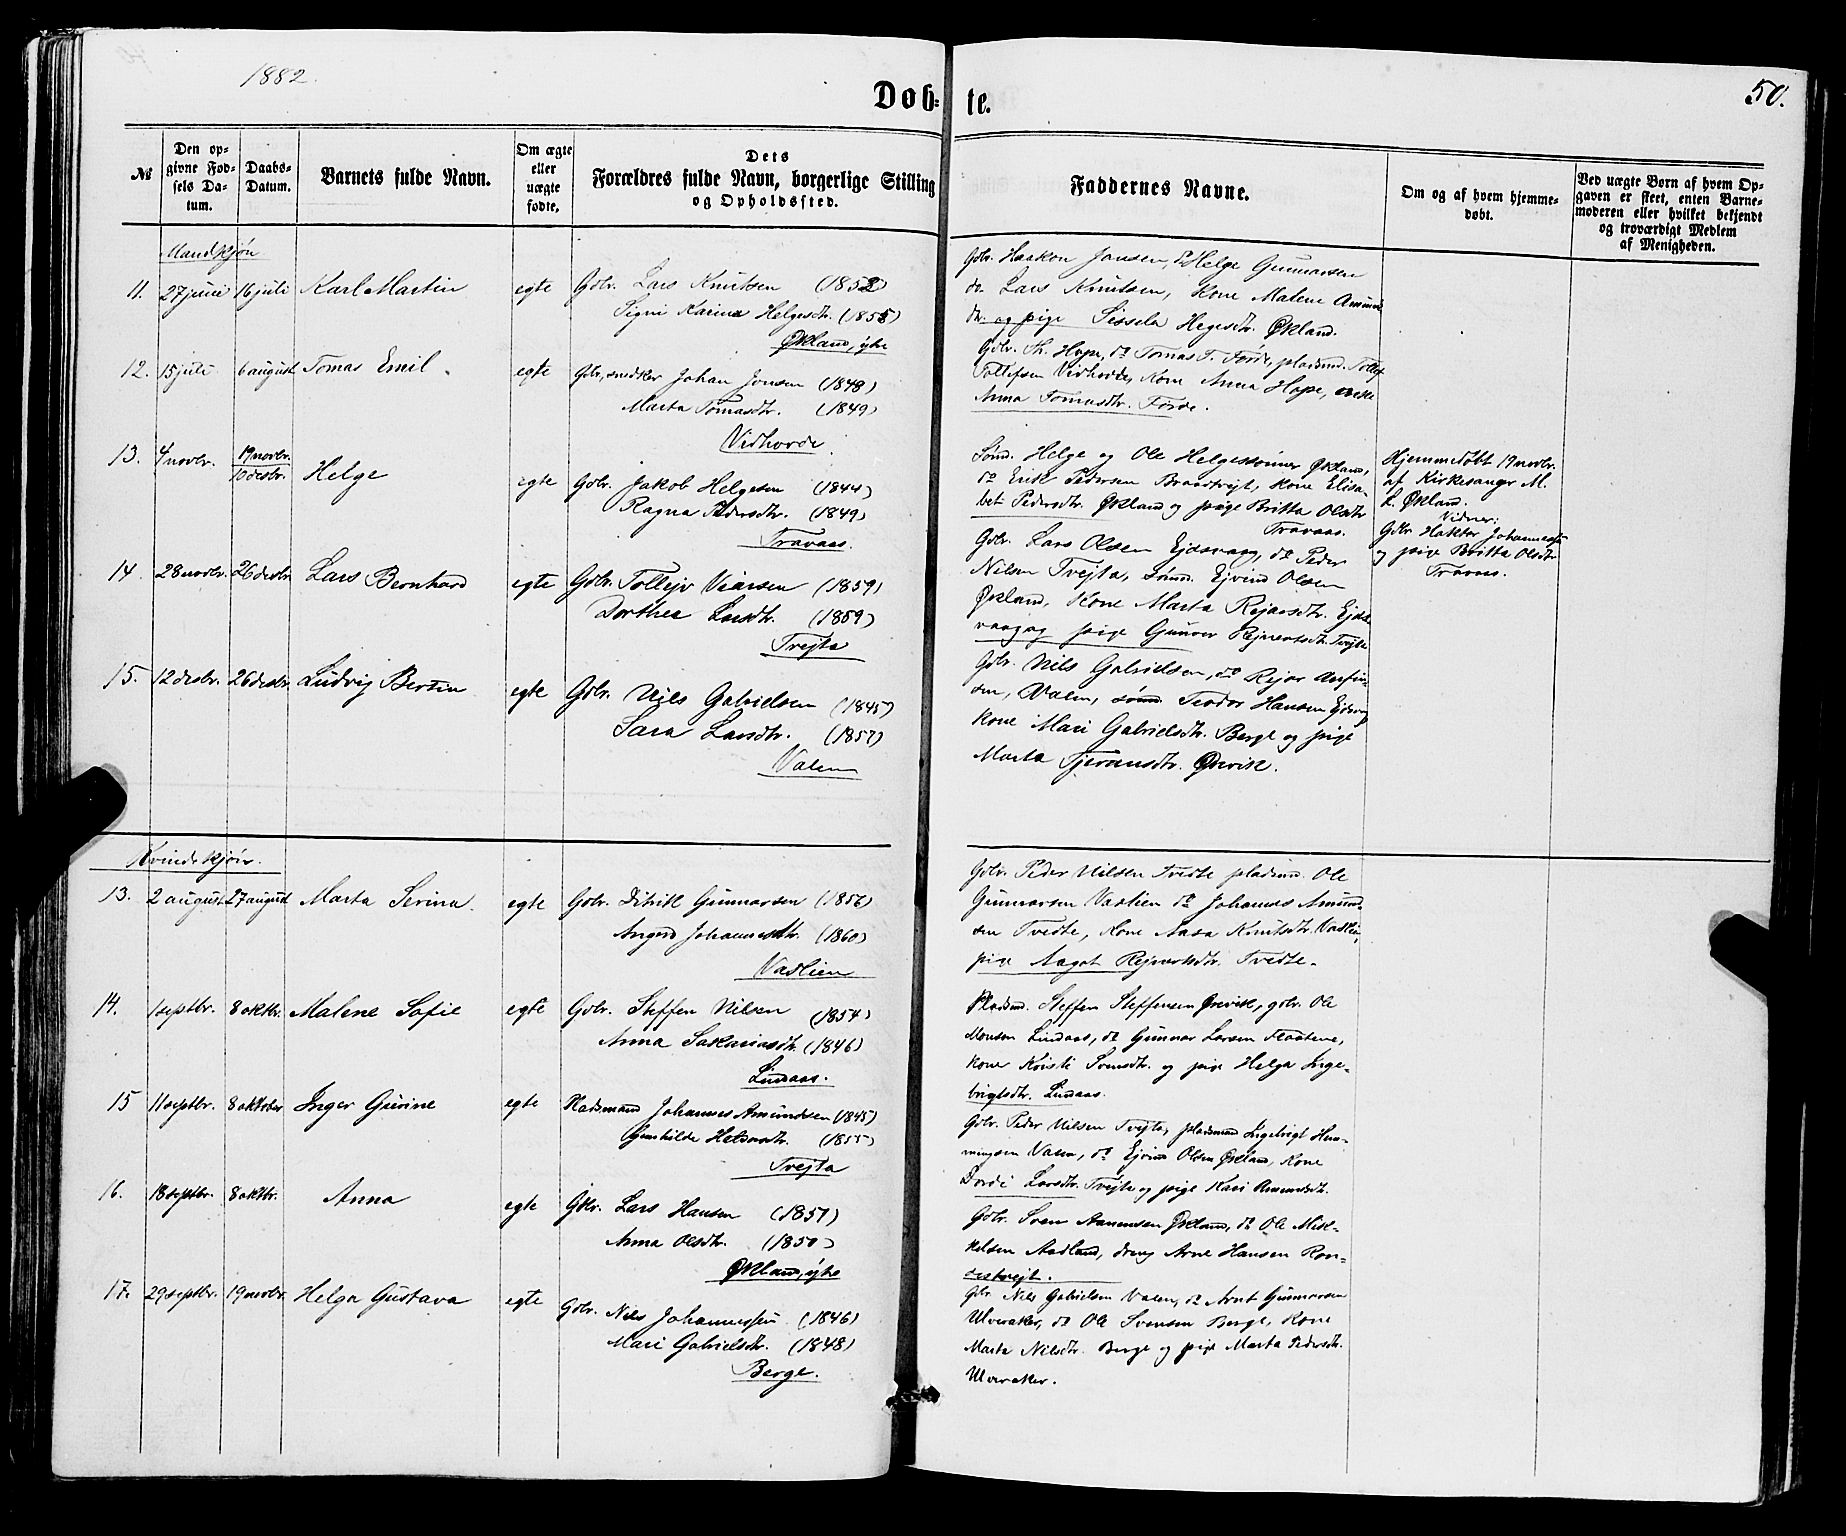 1882.
Døb-
te.
50.
№
Den op-
givne Fød-
sels Da-
tum.
Daabs-
Datum.
Barnets fulde Navn.
Om ægte
eller
uægte
fødte.
Dets
Forældres fulde Navn, borgerlige Stilling
og Opholdssted.
Faddernes Navne.
Om og af hvem hjemme-
døbt.
Ved uægte Børn af hvem Op-
gaven er skeet, enten Barne-
moderen eller hvilket bekjendt
og troværdigt Medlem
af Menigheden.
Mandkjøn
11. 27 juni 16 juli Karl Martin egte Gbr. Lars Knutsen (1852)
Signi Karina Helgesdtr. (1855)
Økland, ytre
Gbr. Haakon Jansen, Helge Gunnarsen
do. Lars Knutsen, Kone Malene Amunds
dtr. og pige Sissela Hegesdtr. Økland.
12. 15 juli 6 august Tomas Emil egte Gbr, snedker Johan Jonsen (1848)
Marta Tomasdtr. (1849)
Vidhovde
Gbr. Th. Hope, do Tomas T. Førde, pladsmd. Tollef
Tollefsen Vidhovde, Kone Anna Hope, enke
Anna Tomasdtr. Førde.
13. 4 novbr. 19 novbr.
10 desbr. Helge egte Gbr. Jakob Helgesen (1844)
Ragna Pedersdtr. (1849)
Travaas.
Sønd. Helge og Ole Helgessønner Økland,
do Erik Pedersen Braadtvejt, Kone Elisa-
bet Pedersdtr. Økland og pige Britta Olsdtr
Travaas.
Hjemmedøbt 19 novbr.
af Kirkesanger M.
L. Økland.
Vidner:
Gbr Haktor Johannessen
og pige Britta Olsdtr
Travaas.
14. 28 novbr. 26 desbr. Lars Bernhard egte Gbr. Tollejv Viarsen (1859)
Dorthea Larsdtr. (1859)
Tvejta
Gbr. Lars Olsen Ejdsvaag, do Peder
Nilsen Tvejta, sønd. Ejvind Olsen
Økland, Kone Marta Rejarsdtr. Ejds
vaag og pige Gunvor Rejnertsdtr. Tvejta
15. 12 desbr. 26 desbr. Ludvig Bertin egte Gbr. Nils Gabrielsen (1845)
Sara Larsdtr. (1857)
Valen
Gbr. Nils Gabrielsen, do Rejar Anfin-
sen, Valen, sønd. Teodor Hansen Ejdsvag
kone Mari Gabrielsdtr. Berge og pige
Marta Tjeransdtr. Ørevik.
Kvindekjøn.
13. 2 august 27 august Marta Serina egte Gbr. Didrik Gunnarsen (1856)
Angerd Johannesdtr. (1860)
Vadlien
Gbr. Peder Nilsen Tvedte pladsmd. Ole
Gunnarsen Vadlien do Johannes Amund-
sen Tvedte, Kone Aasa Knutsdtr. Vadlien,
pige Aagot Rejnertsdtr. Tvedte.
14. 1 septbr. 8 oktbr. Malene Sofie egte Gbr. Steffen Nilsen (1854)
Anna Sakariasdtr. (1846)
Lindaas.
Pladsmd. Steffen Steffensen Ørevik, gbr. Ole
Monsen Lindaas, do Gunnar Larsen Flaatene,
kone Kristi Svensdtr. og pige Helga Inge-
brigtsdtr. Lindaas.
15 11 septbr. 8 oktober Inger Gurine egte Pladsmand Johannes Amundsen (1845)
Gunhilde Helsnesdtr. (1855)
Tvejta
Gbr. Peder Nilsen Tvejta, pladsmand Ingebrigt Hen-
ningsen Valen, do Ejvind Olsen Økland, Kone
Dordi Larsdtr. Tvejta og pige Kari Amundsdtr.
16. 18 septbr. 8 oktbr. Anna egte Gbr. Lars Hansen (1857)
Anna Olsdtr. (1850)
Økland, ytre
Gbr. Sven Aanensen Økland, do Ole Mik-
kelsen Aadland, dreng Arne Hansen Ron-
destvejt.
17. 29 septbr. 19 novbr. Helga Gustava egte Gbr. Nils Johannessen (1846)
Mari Gabrielsdtr. (1848)
Berge.
Gbr. Nils Gabrielsen Valen, do Arnt Gunnarsen
Ulveraker, do Ole Svensen Berge, Kone
Marta Nilsdtr. Berge og pige Marta Pedersdtr.
Ulveraker.